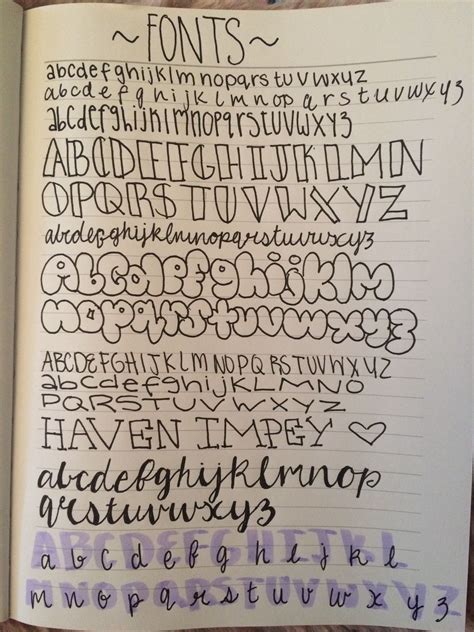 ~FONTS~
abcdefghijklmnopqrstuvwxyz
abcdefghijklmnopqrstuvwxyz
abcdefghijklmnopqrstuvwxyz
ABCDEFGHIJKLMN
OPQRSTUVWXYZ
abcdefghijklmnopqrstuvwxyz
Abcdefghijklm
nopqrstuvwxyz
ABCDEFGHIJKLMNOPQRSTUVWXYZ
abcdefghijKLMNO
PQRSTUVWXYZ
HAVEN IMPEY ♡
abcdefghijklmnop
qrstuvwxyz
ABCDEFGHIJKL
a b c d e f g h i j k l
MNOPQRSTUVWXYZ
m n o p q r s t u v w x y z